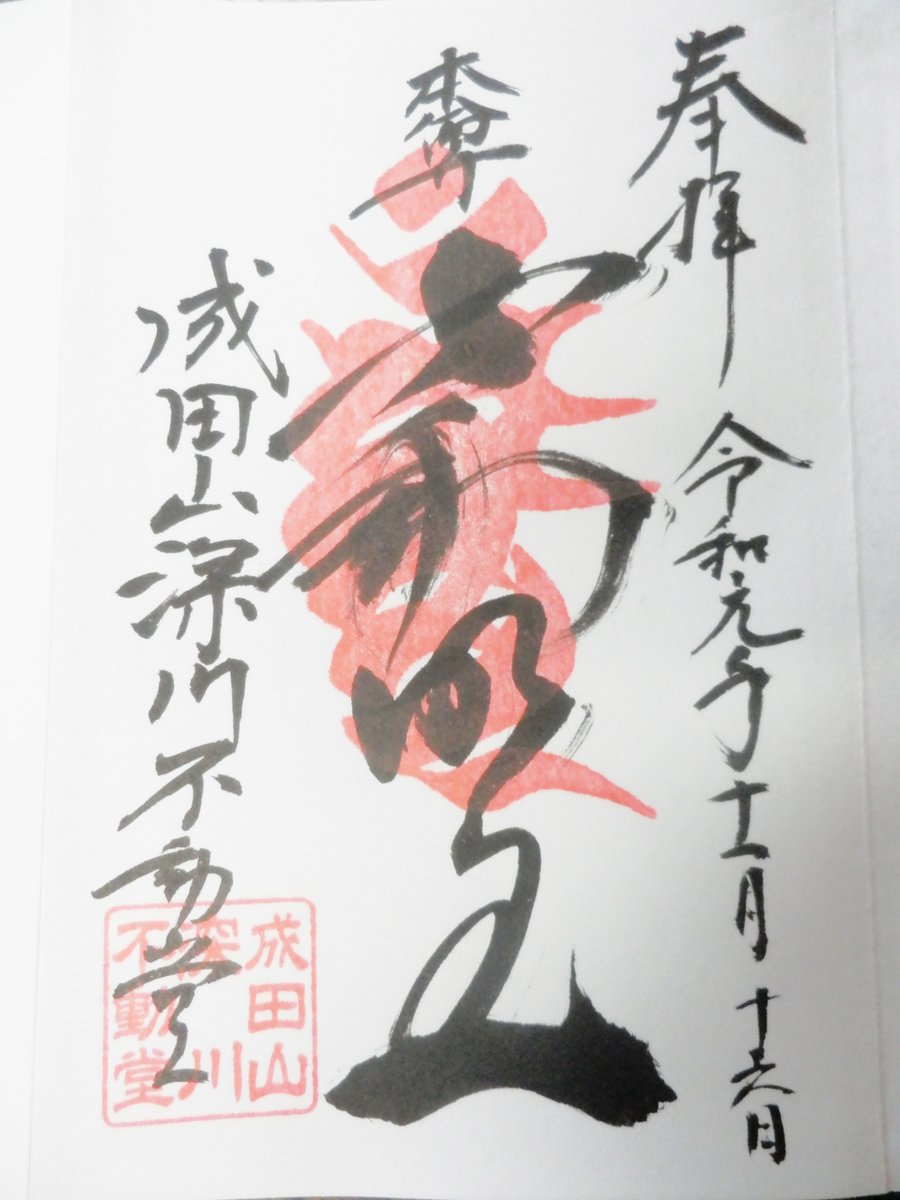 奉拝　令和元年十一月十六日
本尊
不動明王
成田山深川不動堂
成田山
深川
不動堂